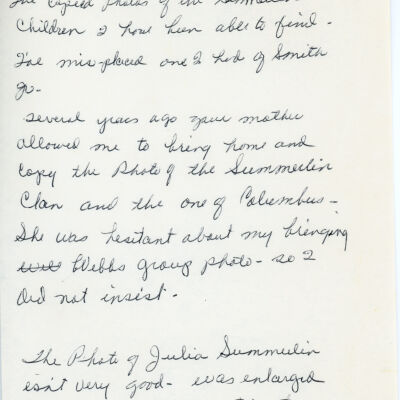 the copied photos of the Summerlin
Children I have been able to find -
I've misplaced one I had of Smith
Jr.
Several years ago your mother
allowed me to bring home and
copy the Photo of the Summerlin
Clan and the one of Columbus -
She was hesitant about my bringing
Webbs group photo - so I
did not insist -
The Photo of Julia Summerlin
isn't very good - was enlarged